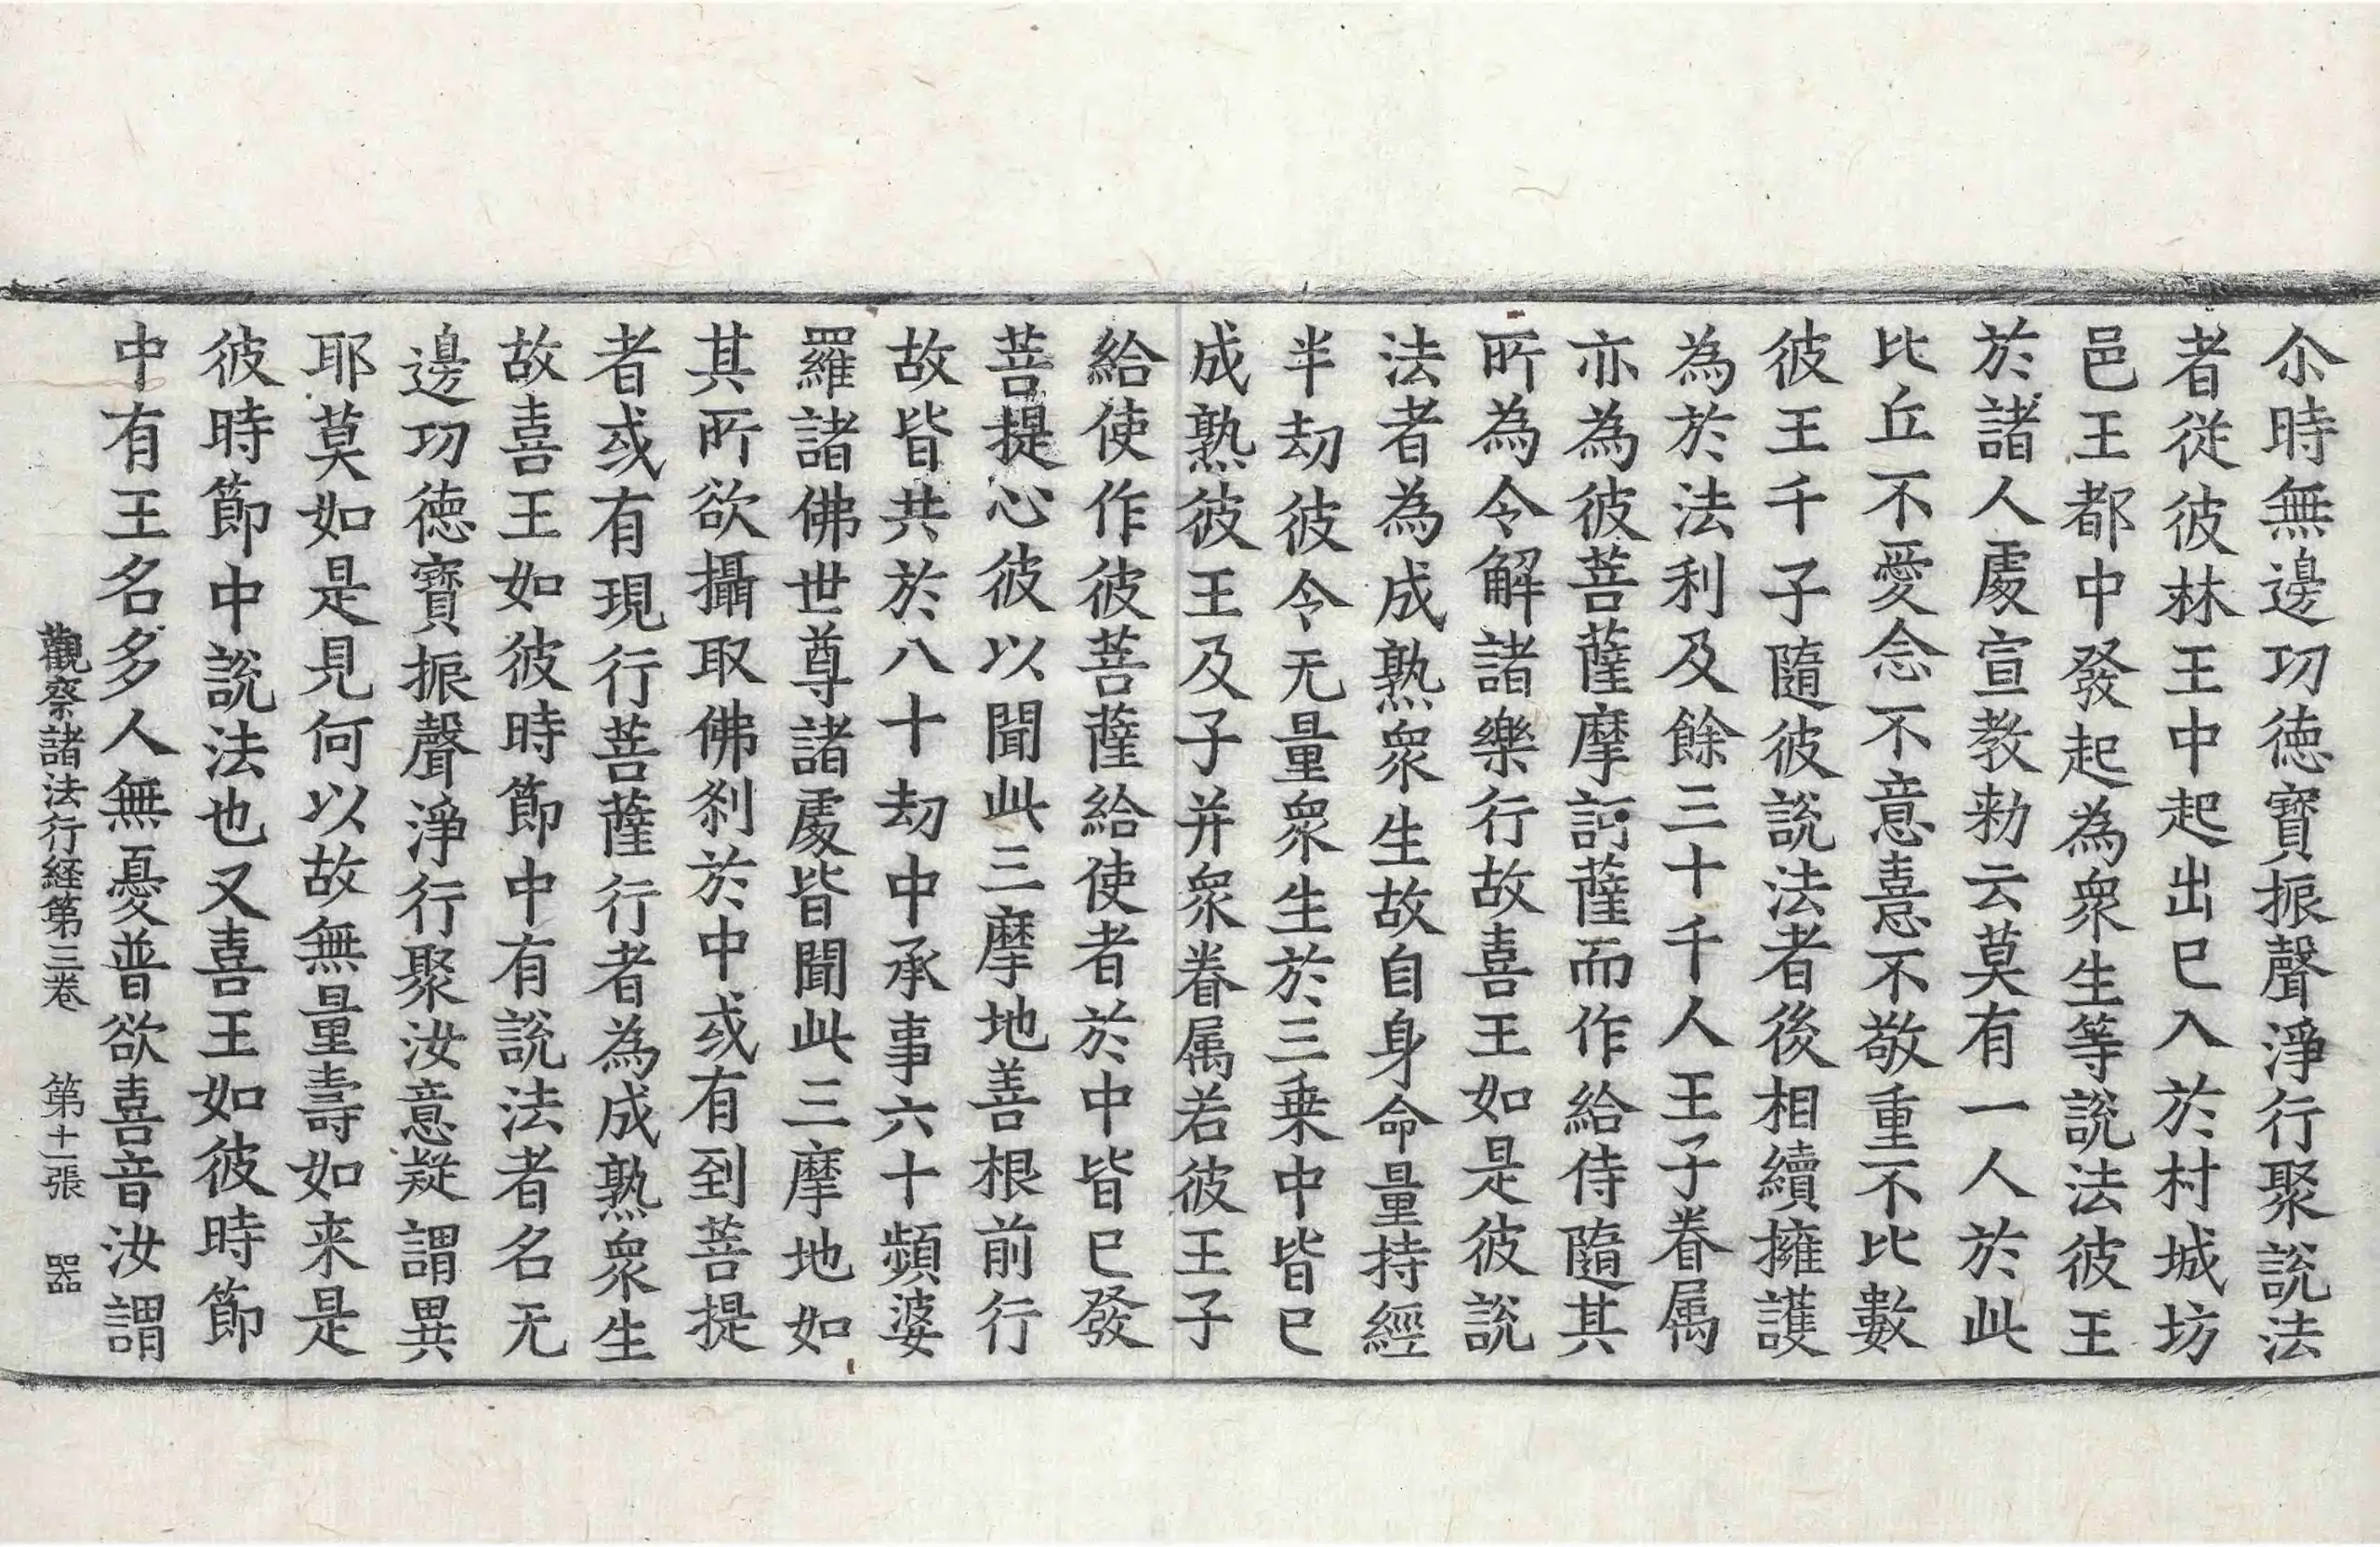 尒時無邊功德寶振聲淨行聚說法
者從彼林王中起出已入於村城坊
邑王都中發起為眾生等說法彼王
於諸人處宣教勑云莫有一人於此
比丘不愛念不意憙不敬重不比數
彼王千子隨彼說法者後相續擁護
為於法利及餘三十千人王子眷属
亦為彼菩薩摩訶薩而作給侍隨其
所為令解諸樂行故喜王如是彼說
法者為成熟眾生故自身命量持經
半劫彼令无量眾生於三乗中皆已
成熟彼王及子并眾眷属若彼王子
給使作彼菩薩給使者於中皆已發
菩提心彼以聞此三摩地善根前行
故皆共於八十劫中承事六十頻婆
羅諸佛世尊諸處皆聞此三摩地如
其所欲攝取佛刹於中或有到菩提
者或有現行菩薩行者為成熟眾生
故喜王如彼時節中有說法者名无
邊功德寶振聲淨行聚汝意疑謂異
耶莫如是見何以故無量壽如来是
彼時節中說法也又喜王如彼時節
中有王名多人無憂普欲喜音汝謂
觀察諸法行経第三卷 第十一張 器